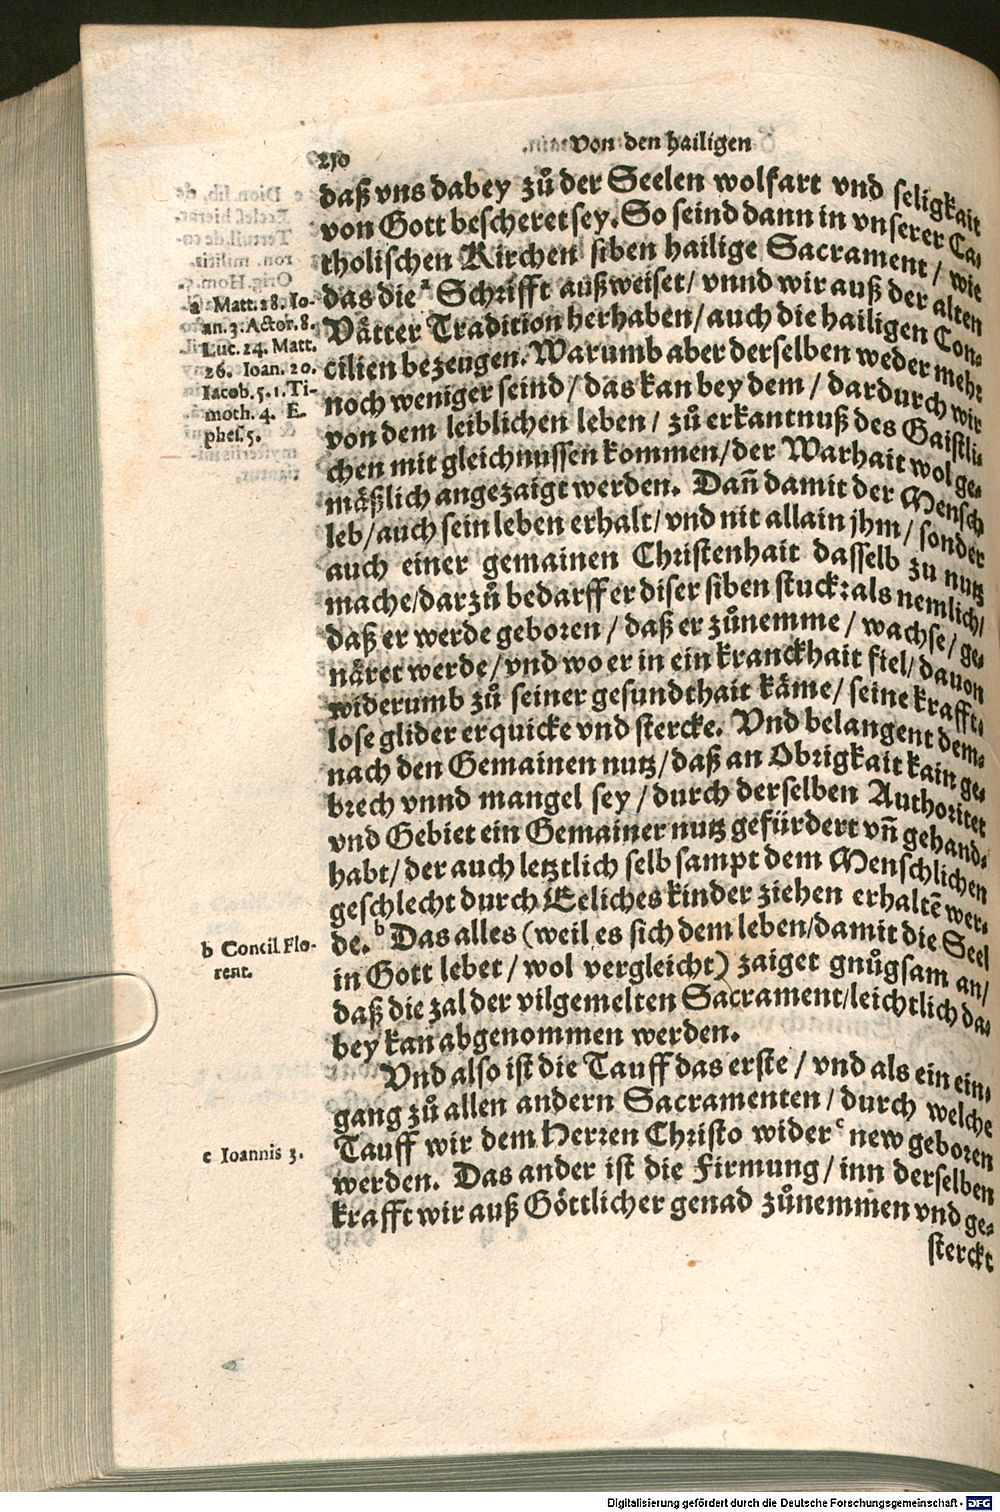 Von den hailigen
250
daß vns dabey zů der Seelen wolfart vnd seligkait
von Gott bescheret sey. So seind dann in vnserer Ca⸗
tholischen Kirchen siben hailige Sacrament / wie
das die ᵃ Schrifft außweiset / vnnd wir auß der alten
Vätter Tradition herhaben / auch die hailigen Con⸗
cilien bezeugen. Warumb aber derselben weder mehr
noch weniger seind / das kan bey dem / dardurch wir
von dem leiblichen leben / zů erkantnuß des Gaistli⸗
chen mit gleichnussen kommen / der Warhait wol ge⸗
mäßlich angezaigt werden. Dañ damit der Mensch
leb / auch sein leben erhalt / vnd nit allain jhm / sonder
auch einer gemainen Christenhait dasselb zu nutz
mache / darzů bedarff er diser siben stuck: als nemlich /
daß er werde geboren / daß er zůnemme / wachse / ge⸗
näret werde / vnd wo er in ein kranckhait fiel / dauon
widerumb zů seiner gesundthait käme / seine krafft⸗
lose glider erquicke vnd stercke. Vnd belangent dem⸗
nach den Gemainen nutz / daß an Obrigkait kain ge⸗
brech vnnd mangel sey / durch derselben Authoritet
vnd Gebiet ein Gemainer nutz gefürdert vñ gehand⸗
habt / der auch letztlich selb sampt dem Menschlichen
geschlecht durch Eeliches kinder ziehen erhaltẽ wer⸗
de. ᵇ Das alles (weil es sich dem leben / damit die Seel
in Gott lebet / wol vergleicht) zaiget gnůgsam an /
daß die zal der vilgemelten Sacrament / leichtlich da⸗
bey kan abgenommen werden.
Vnd also ist die Tauff das erste / vnd als ein ein⸗
gang zů allen andern Sacramenten / durch welche
Tauff wir dem Herren Christo wider ᶜ new geboren
werden. Das ander ist die Firmung / inn derselben
krafft wir auß Göttlicher genad zůnemmen vnd ge⸗
sterckt
a Matt. 28. Io-
an. 3. Actor. 8.
Luc. 24. Matt.
26. Ioan. 20.
Iacob. 5. 1. Ti-
moth. 4. E-
phes. 5.
b Concil. Flo-
rent.
c Ioannis 3.
Digitalisierung gefördert durch die Deutsche Forschungsgemeinschaft - DFG